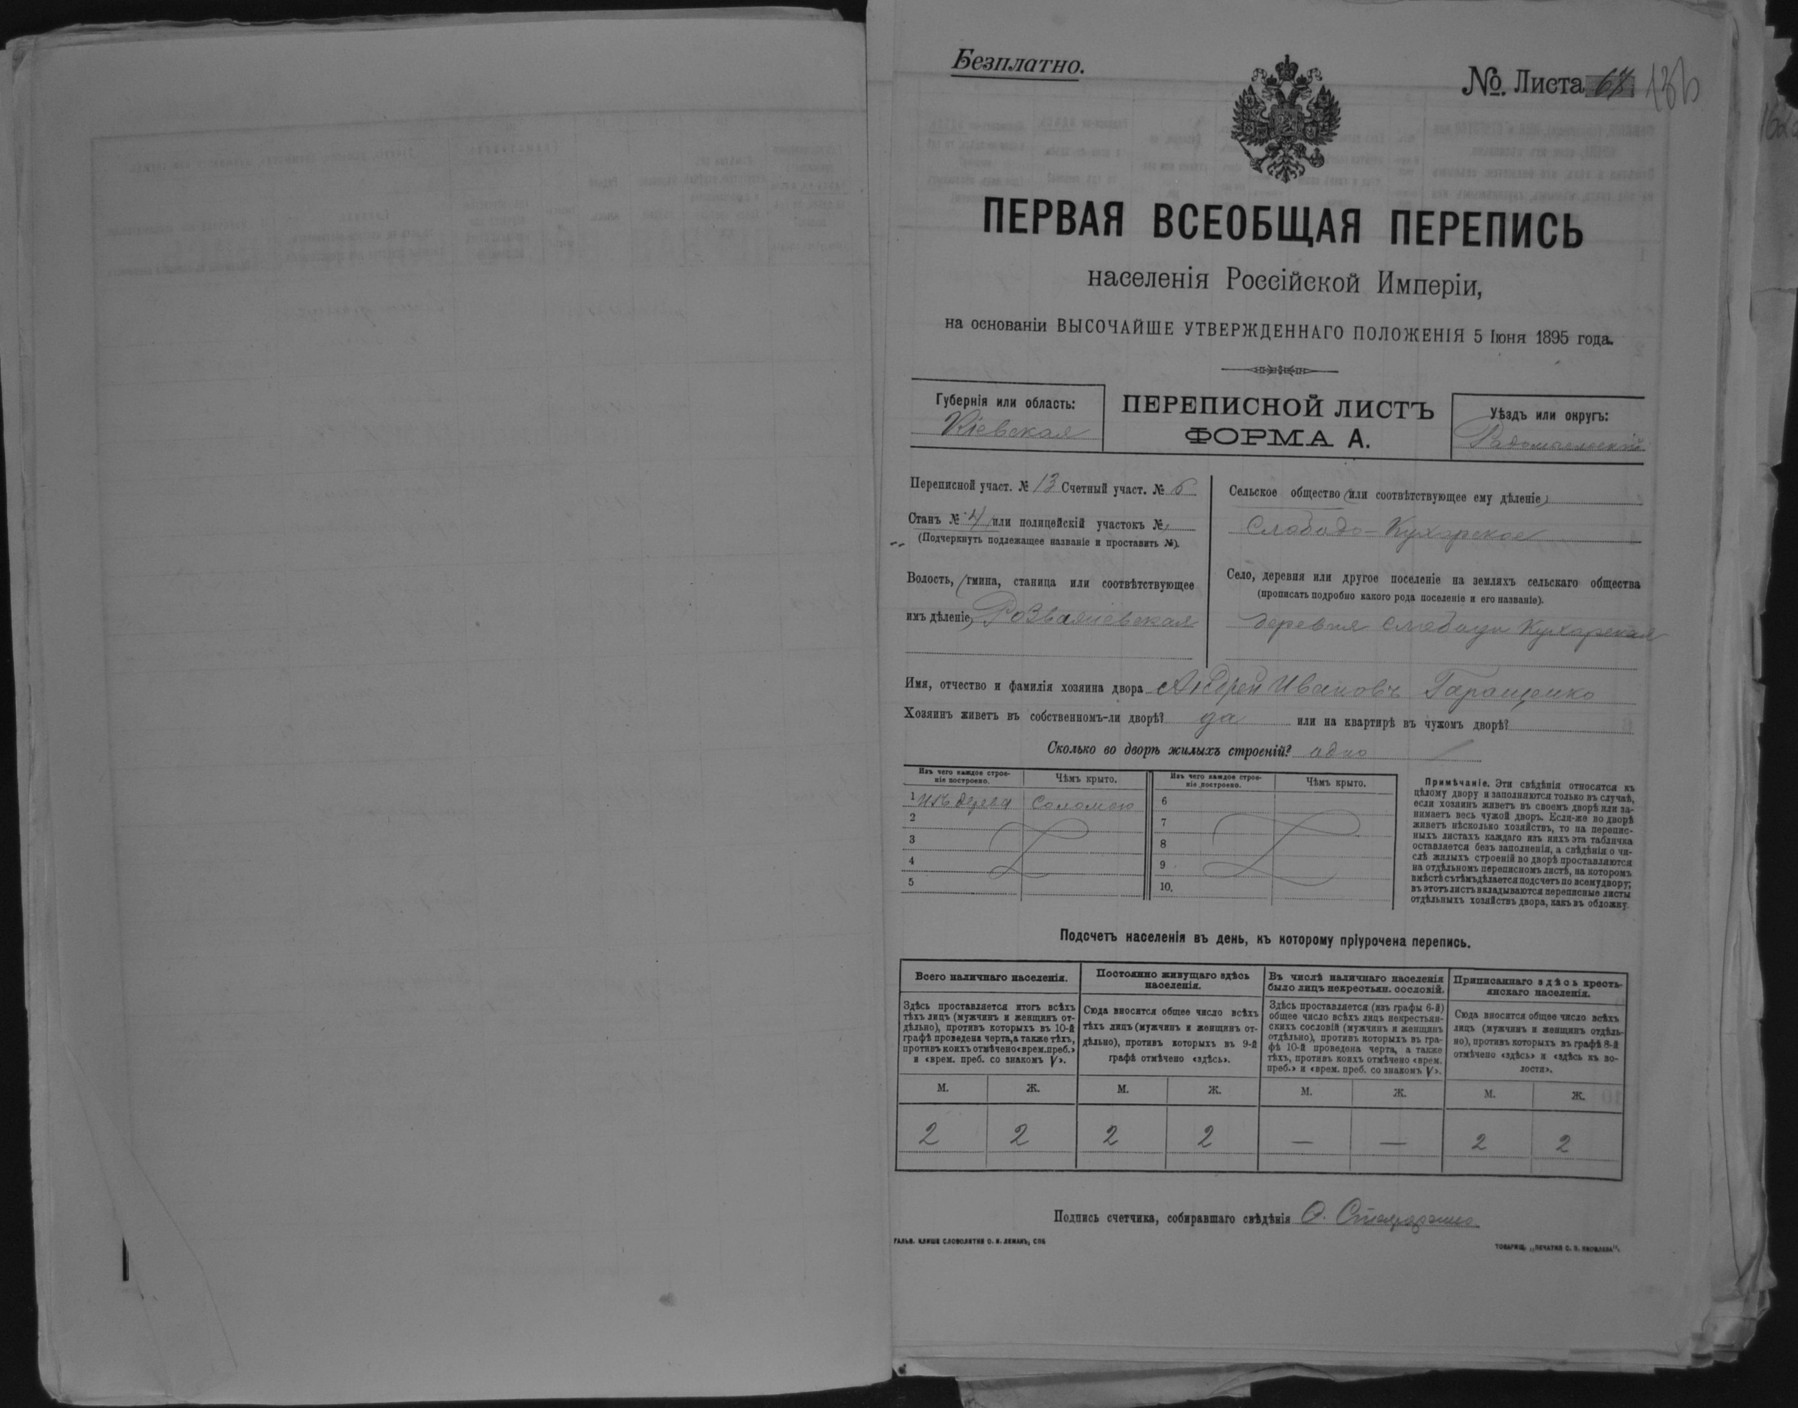 Безплатно.
№ Листа 67
ПЕРВАЯ ВСЕОБЩАЯ ПЕРЕПИСЬ
населенія Россійской Имперіи,
на основаніи ВЫСОЧАЙШЕ УТВЕРЖДЕННАГО ПОЛОЖЕНІЯ 5 Іюня 1895 года.
Губернія или область:
Кіевская
ПЕРЕПИСНОЙ ЛИСТЪ
ФОРМА А.
Уѣздъ или округъ:
Радомысльскій
Переписной участ. № 13 Счетный участ. № 6
Станъ № 4 или полицейскій участокъ №
(Подчеркнуть подлежащее названіе и проставить №).
Волость, (гмина, станица или соотвѣтствующее
имъ дѣленіе) Розважевская
Сельское общество (или соотвѣтствующее ему дѣленіе)
Слободо-Кухарское
Село, деревня или другое поселеніе на земляхъ сельскаго общества
(прописать подробно какого рода поселеніе и его названіе).
деревня Кухарская
Имя, отчество и фамилія хозяина двора Андрей Ивановъ Гаращенко
Хозяинъ живетъ въ собственномъ-ли дворѣ? да или на квартирѣ въ чужомъ дворѣ?
Сколько во дворѣ жилыхъ строеній? адно
Изъ чего каждое строе-
ніе построено.
Чѣмъ крыто.
Изъ чего каждое строе-
ніе построено.
Чѣмъ крыто.
1 изъ дерева Соломою
2
3
4
5
6
7
8
9
10.
Примѣчаніе. Эти свѣдѣнія относятся къ
цѣлому двору и заполняются только въ случаѣ,
если хозяинъ живетъ въ своемъ дворѣ или за-
нимаетъ весь чужой дворъ. Если-же во дворѣ
живетъ нѣсколько хозяйствъ, то на перепис-
ныхъ листахъ каждаго изъ нихъ эта табличка
оставляется безъ заполненія, а свѣдѣнія о чи-
слѣ жилыхъ строеній во дворѣ проставляются
на отдѣльномъ переписномъ листѣ, на которомъ
вмѣстѣ съ тѣмъ дѣлается подсчетъ по всему двору;
въ этотъ листъ вкладываются переписные листы
отдѣльныхъ хозяйствъ двора, какъ въ обложку.
Подсчетъ населенія въ день, къ которому пріурочена перепись.
Всего наличнаго населенія.
Здѣсь проставляется итогъ всѣхъ
тѣхъ лицъ (мужчинъ и женщинъ от-
дѣльно), противъ которыхъ въ 10-й
графѣ проведена черта, а также тѣхъ,
противъ коихъ отмѣчено «врем. преб.»
и «врем. преб. со знакомъ V».
Постоянно живущаго здѣсь
населенія.
Сюда вносится общее число всѣхъ
тѣхъ лицъ (мужчинъ и женщинъ от-
дѣльно), противъ которыхъ въ 9-й
графѣ отмѣчено «здѣсь».
Въ числѣ наличнаго населенія
было лицъ некрестьян. сословій.
Здѣсь проставляется (изъ графы 6-й)
общее число всѣхъ лицъ некрестьян-
скихъ сословій (мужчинъ и женщинъ
отдѣльно), противъ которыхъ въ гра-
фѣ 10-й проведена черта, а также
тѣхъ, противъ коихъ отмѣчено «врем.
преб.» и «врем. преб. со знакомъ V».
Приписаннаго здѣсь кресть-
янскаго населенія.
Сюда вносится общее число всѣхъ
лицъ (мужчинъ и женщинъ отдѣль-
но), противъ которыхъ въ графѣ 8-й
отмѣчено «здѣсь» и «здѣсь къ во-
лости».
М. Ж. М. Ж. М. Ж. М. Ж.
2 2 2 2 — — 2 2
Подпись счетчика, собиравшаго свѣдѣнія О.
ГАЛЬВ. КЛИШЕ СЛОВОЛИТНИ О. И. ЛЕМАНЪ, СПБ
ТОВАРИЩ. „ПЕЧАТНЯ С. П. ЯКОВЛЕВА".